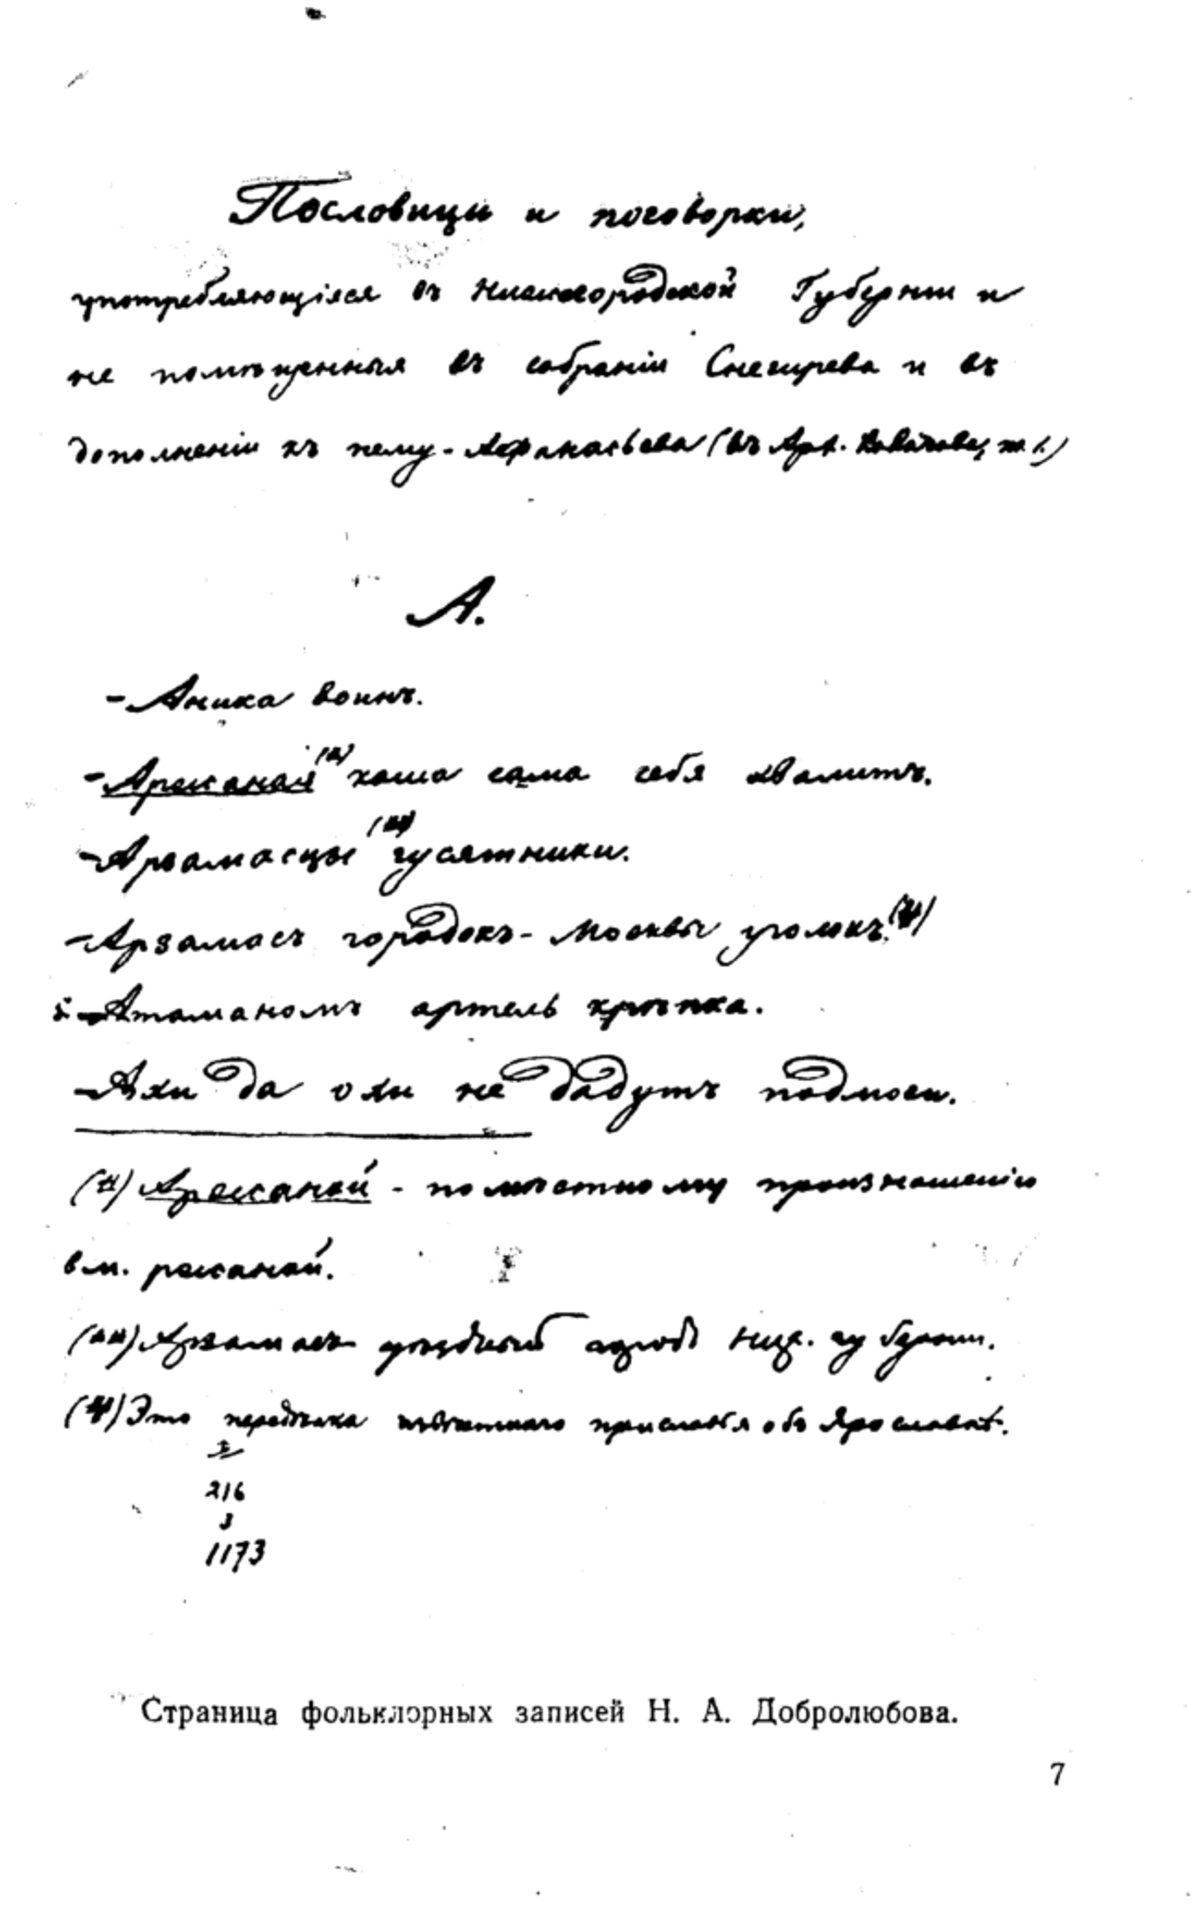 Пословицы и поговорки,
употребляющіяся въ Нижегородской Губерніи и
не помѣщенныя въ собраніи Снегирева и въ
дополненіи къ нему - Аѳанасьева (въ Арх. Калачова, т. 1.)
А.
- Аника воинъ.
- Аржаная (*) каша сама себя хвалитъ.
- Арзамасцы (**) гусятники.
- Арзамасъ городокъ - Москвы уголокъ.(***)
5. - Атаманомъ артель крѣпка.
- Ахи да охи не дадутъ подмоги.
(*) Аржаной - по мѣстному произношенію
вм. ржаной.
(**) Арзамасъ уѣздный городъ Ниж. губерніи.
(***) Это передѣлка извѣстнаго присловья объ Ярославлѣ.
216
3
1173
Страница фольклорных записей Н. А. Добролюбова.
7